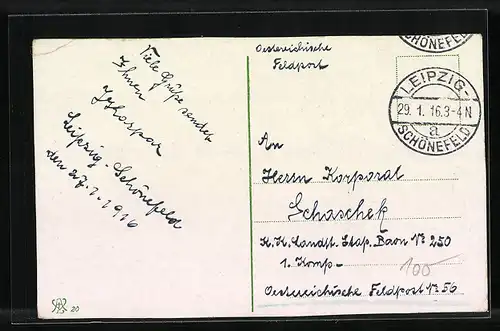 Viele Grüße sendet
Ihnen
Leipzig-Schönefeld
den 27.1.1916
Oesterreichische
Feldpost
SCHÖNEFELD
LEIPZIG-
29.1.16.3-4N
a
SCHÖNEFELD
An
Herrn Korporal
Schaschek
K.K. Landst. Etap. Baon No 250
1. Komp-
100
Oesterreichische Feldpost No 56
20